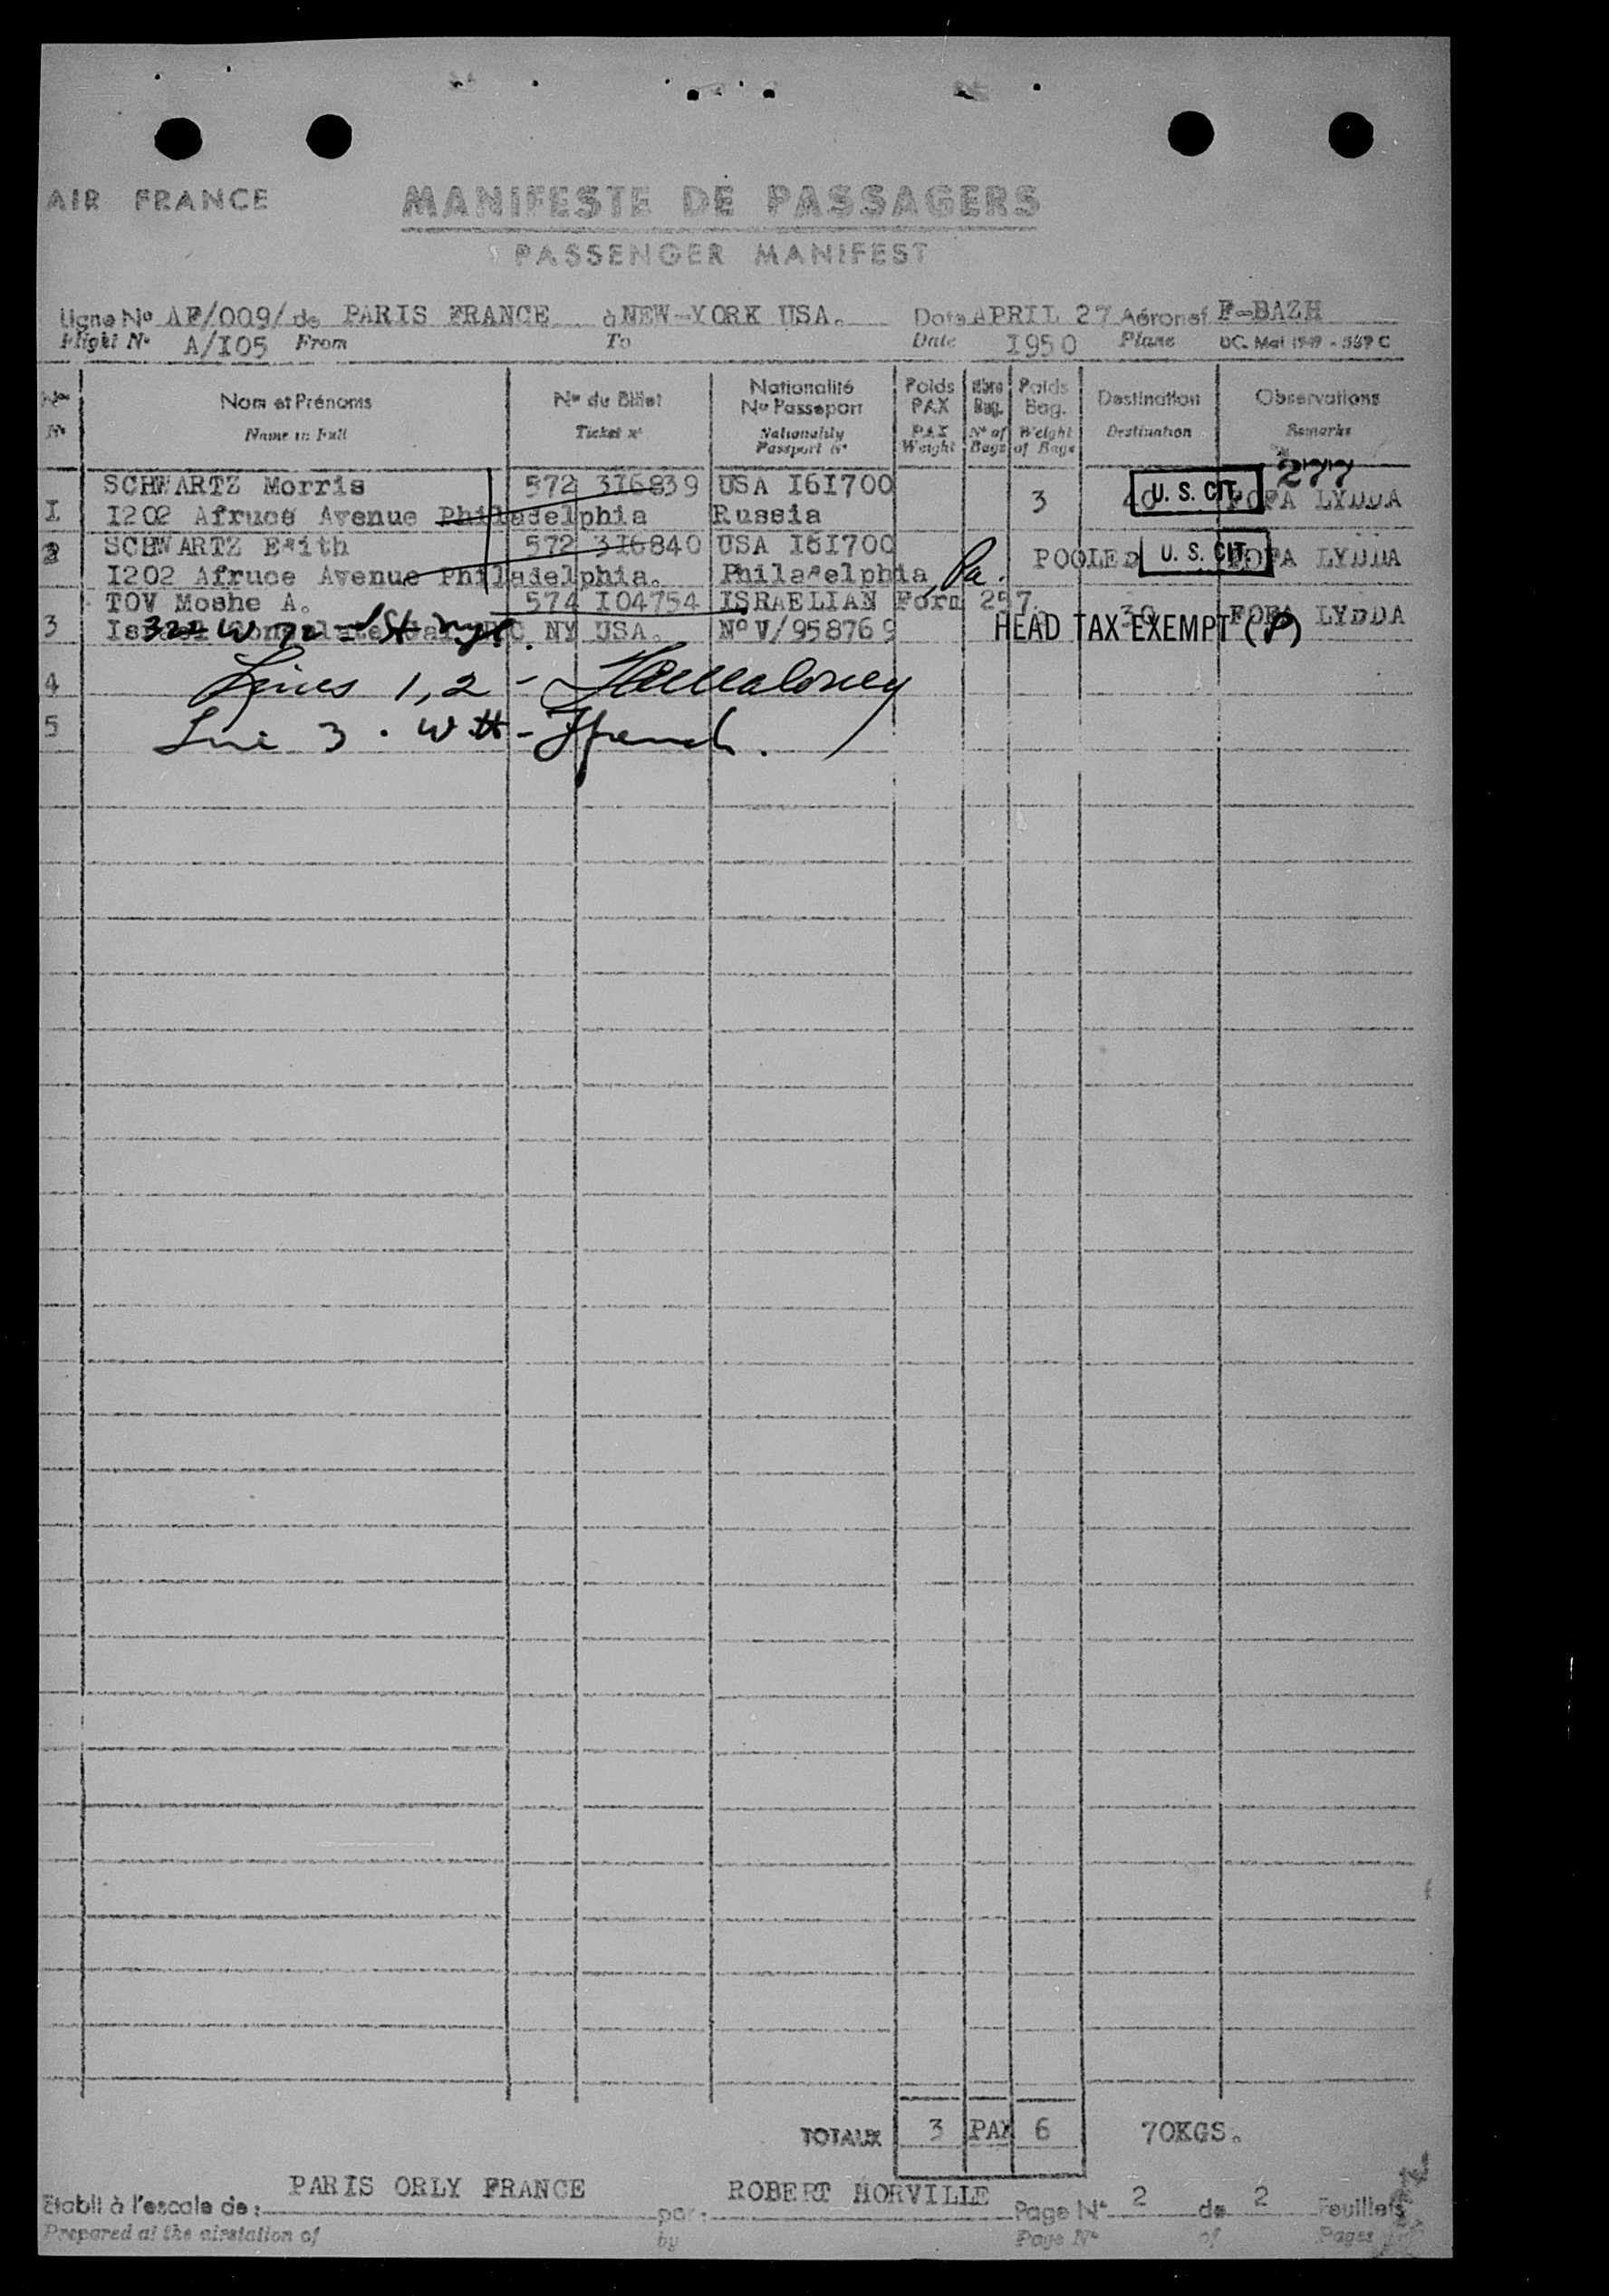 AIR FRANCE
MANIFESTE DE PASSAGERS
PASSENGER MANIFEST
Ligne No AF/009/ de PARIS FRANCE à NEW-YORK USA. Date APRIL 27 Aéronef F-BAZH
Flight No A/I05 From To Date I950 Plane UC. Mai 1949 - 569 C
Nos Nom et Prénoms No du Billet Nationalité No Passeport Poids PAX Nbre Bag. Poids Bag. Destination Observations
No Name in Full Ticket No Nationality Passport No PAX Weight No of Bags Weight of Bags Destination Remarks
277
SCHWARTZ Morris 572 3I6839 USA I6I700
I I202 Afruce Avenue Philadelphia Russia 3 40 U. S. CIT. FOFA LYDDA
2 SCHWARTZ Edith 572 3I6840 USA I6I700
I202 Afruce Avenue Philadelphia. Philadelphia, Pa. POOLED U. S. CIT. FOFA LYDDA
TOV Moshe A. 574 I04754 ISRAELIAN Form 257.
3 322 W 72nd St NY USA. No V/958769 30 FOFA LYDDA
HEAD TAX EXEMPT (P)
4 Lines 1, 2 -
5 Line 3. -
TOTAUX 3 PAX 6 70KGS.
Etabli à l'escale de: PARIS ORLY FRANCE par: ROBERT MORVILLE Page No 2 de 2 Feuillets
Prepared at the airstation of by Page No of Pages